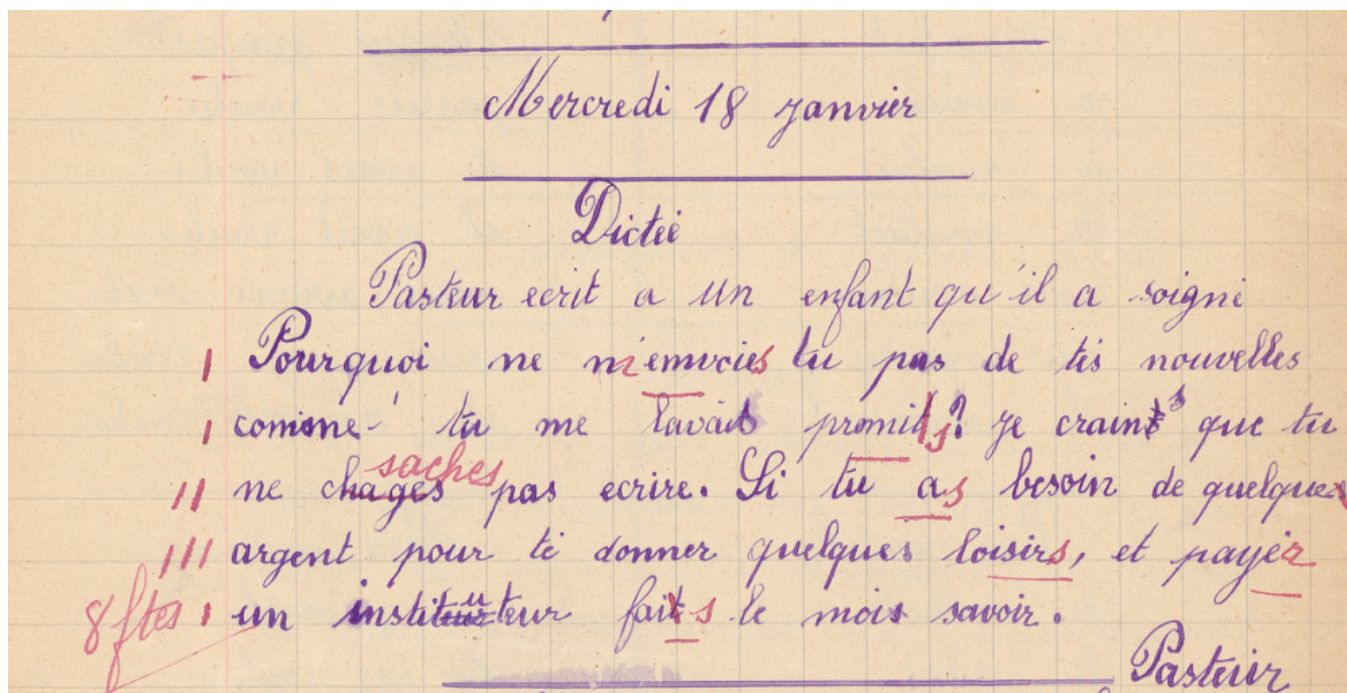 Mercredi 18 janvier
Dictée
Pasteur ecrit a un enfant qu'il a soigné
Pourquoi ne m'envoies tu pas de tes nouvelles
comme tu me l'avais promis? Je crains que tu
ne saches pas ecrire. Si tu as besoin de quelque
argent pour te donner quelques loisirs, et payer
8 ftes un instituteur fais le mois savoir.
Pasteur